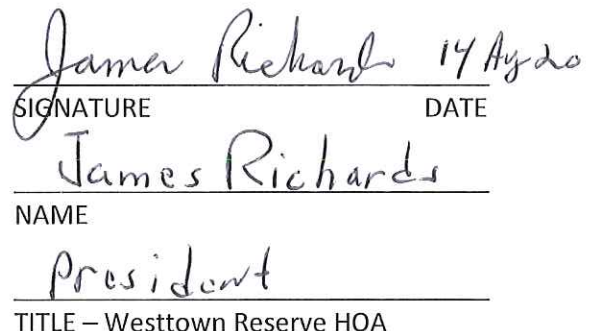 James Richards 14 Aug 20
SIGNATURE DATE
James Richards
NAME
President
TITLE – Westtown Reserve HOA